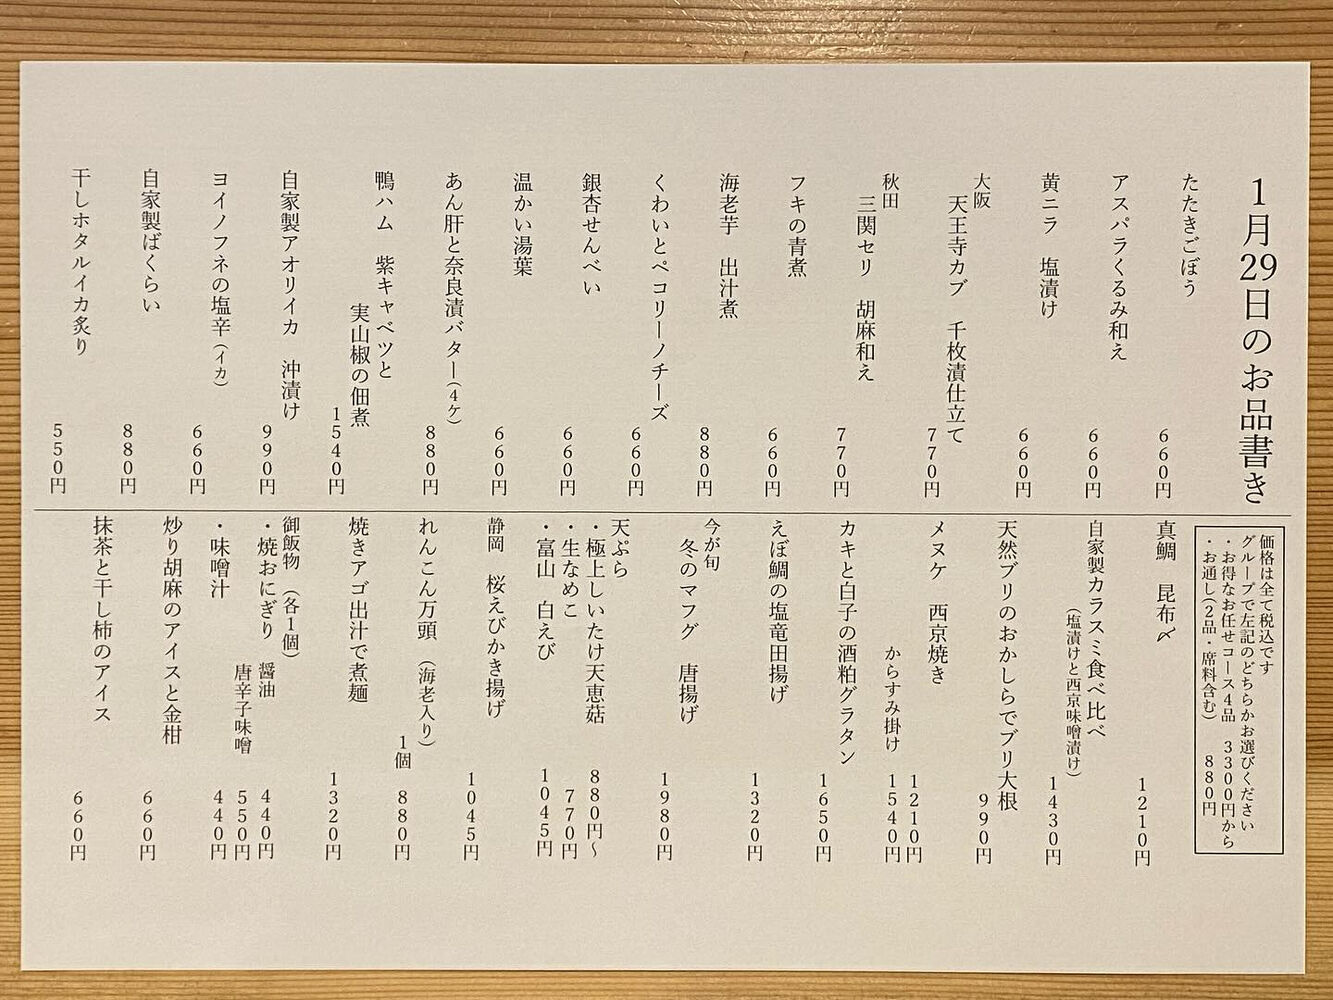 1月29日のお品書き
たたきごぼう
660円
アスパラくるみ和え
660円
黄ニラ 塩漬け
660円
大阪
天王寺カブ 千枚漬仕立て
770円
秋田
三関セリ 胡麻和え
770円
フキの青煮
660円
海老芋 出汁煮
880円
くわいとペコリーノチーズ
660円
銀杏せんべい
660円
温かい湯葉
660円
あん肝と奈良漬バター(4ケ)
880円
鴨ハム 紫キャベツと
実山椒の佃煮
1540円
自家製アオリイカ 沖漬け
990円
ヨイノフネの塩辛(イカ)
660円
自家製ばくらい
880円
干しホタルイカ炙り
550円
価格は全て税込です
グループで左記のどちらかお選びください
・お得なお任せコース4品 3300円から
・お通し(2品・席料含む) 880円
真鯛 昆布〆
1210円
自家製カラスミ食べ比べ
(塩漬けと西京味噌漬け)
1430円
天然ブリのおかしらでブリ大根
990円
メヌケ 西京焼き
1210円
からすみ掛け 1540円
カキと白子の酒粕グラタン
1650円
えぼ鯛の塩竜田揚げ
1320円
今が旬
冬のマフグ 唐揚げ
1980円
天ぷら
・極上しいたけ天恵菇 880円〜
・生なめこ 770円
・富山 白えび 1045円
静岡 桜えびかき揚げ
1045円
れんこん万頭 (海老入り)
1個 880円
焼きアゴ出汁で煮麺
1320円
御飯物 (各1個)
・焼おにぎり 醤油 440円
唐辛子味噌 550円
・味噌汁 440円
炒り胡麻のアイスと金柑
660円
抹茶と干し柿のアイス
660円